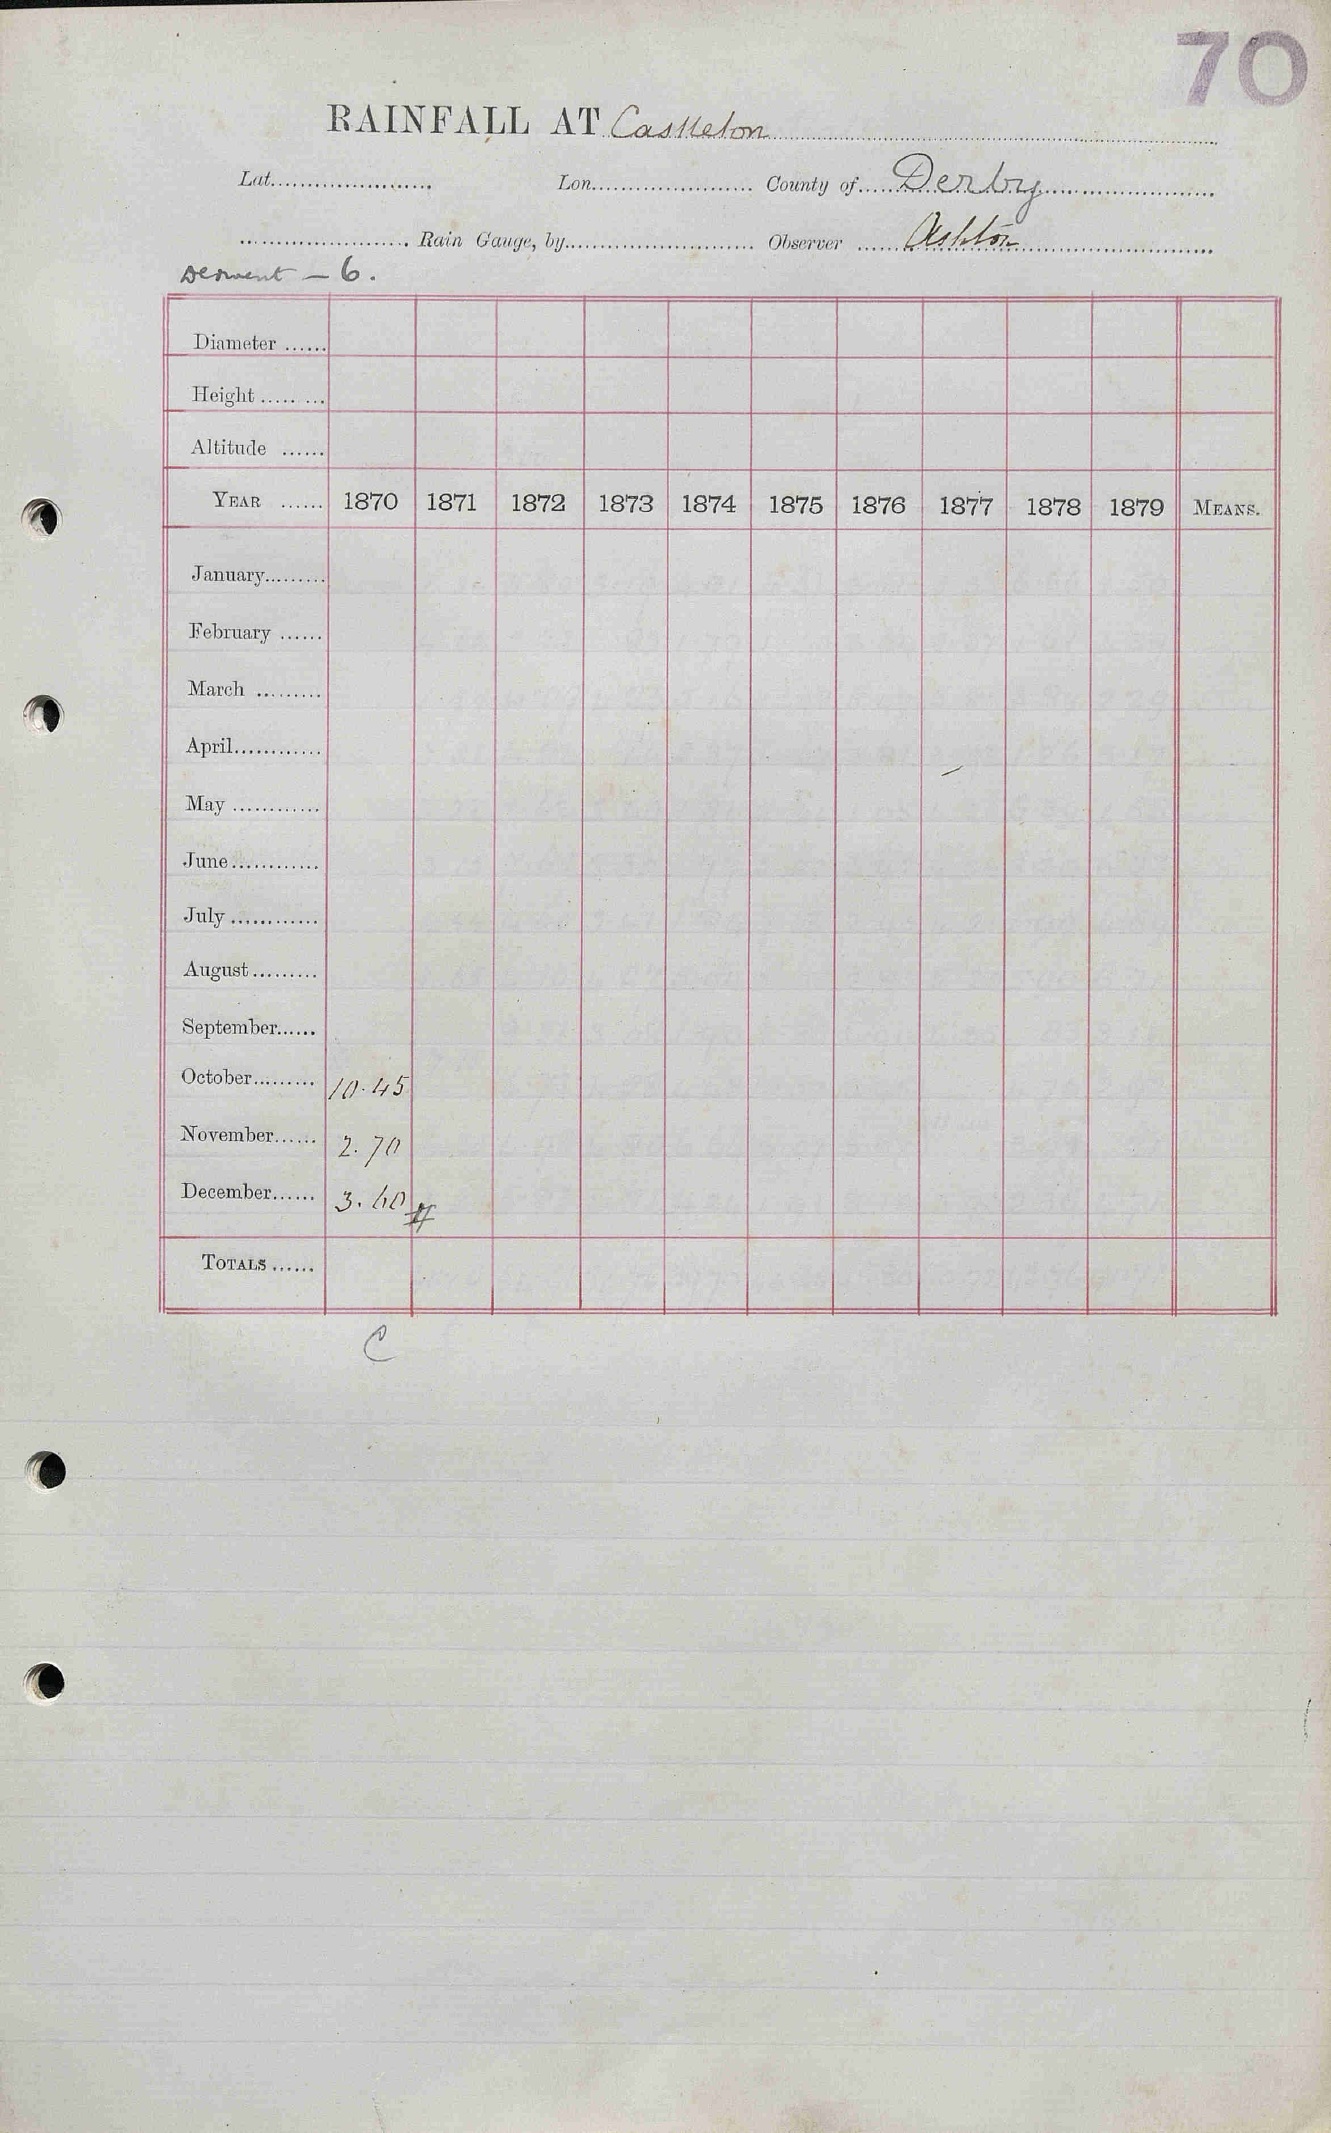 70
RAINFALL AT Castleton
Lat. Lon. County of Derby
Rain Gauge, by Observer Ashton
Derwent — 6.
Diameter
Height
Altitude
YEAR 1870 1871 1872 1873 1874 1875 1876 1877 1878 1879 MEANS.
January
February
March
April
May
June
July
August
September
October 10.45
November 2.70
December 3.60 #
TOTALS
C